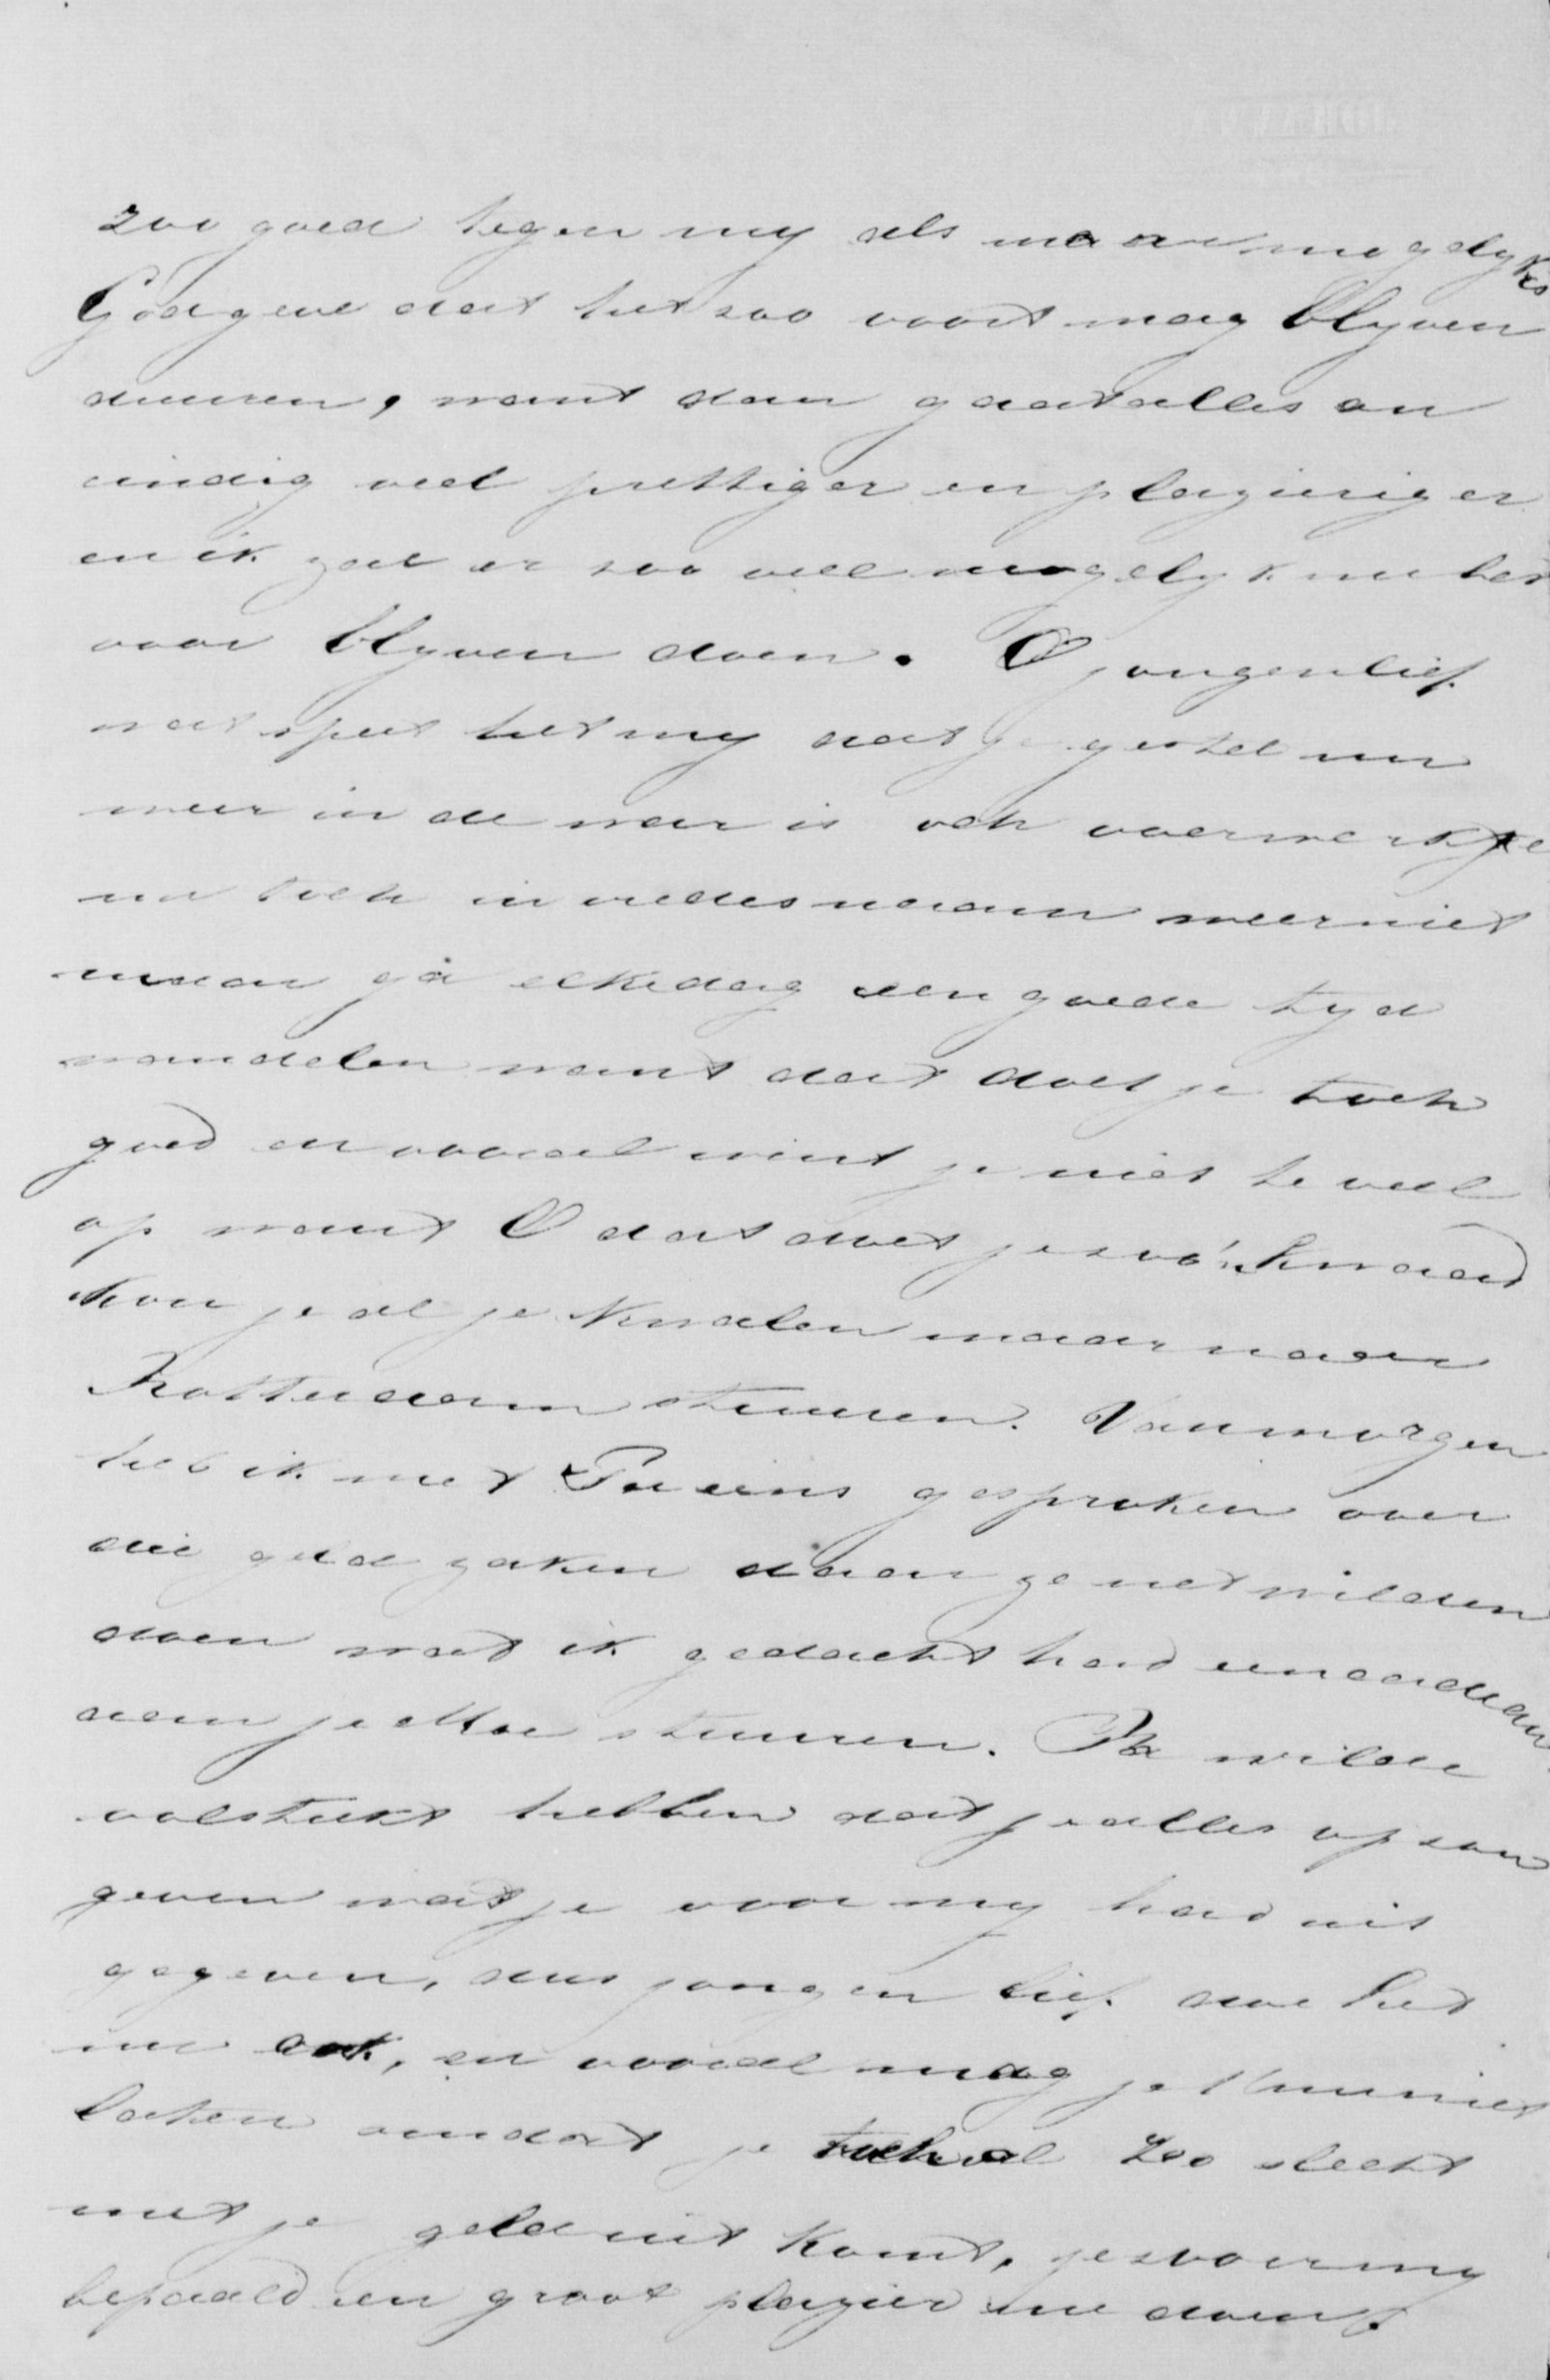 zoo goed tegen my als maar mogelyk is
God geve dat het zoo voort mag blyven
duuren, want dan gaat alles on
eindig veel prettiger en plazieriger
en ik zal er zoo veel mogelyk nu het
voor blyven doen. O jongenlief
wat spyt het my dat je gestel nu
weer in de war is och overwerk je
nu toch in vredesnaam weer niet
maar ga elke dag een goede tyd
wandelen want dat doet je toch
goed en vooral wint je niet te veel
op want O dat doet je zoo'n kwaad
kon je al je kwalen maar naar
Rotterdam stuuren. Vanmorgen
heb ik met gesproken over
die geld zaken daar ze net wilden
doen wat ik gedacht had
aan je Moe stuuren. Ik wilde
volstrekt hebben dat je alles op zou
geven wat je voor my had uit
gegeven, dus jongen lief doe het
nu ook, en vooral mag je niet
lachen omdat je toch al zoo slecht
met je geld uit komt, je zou er my
bepaald een groot plazier mee doen.